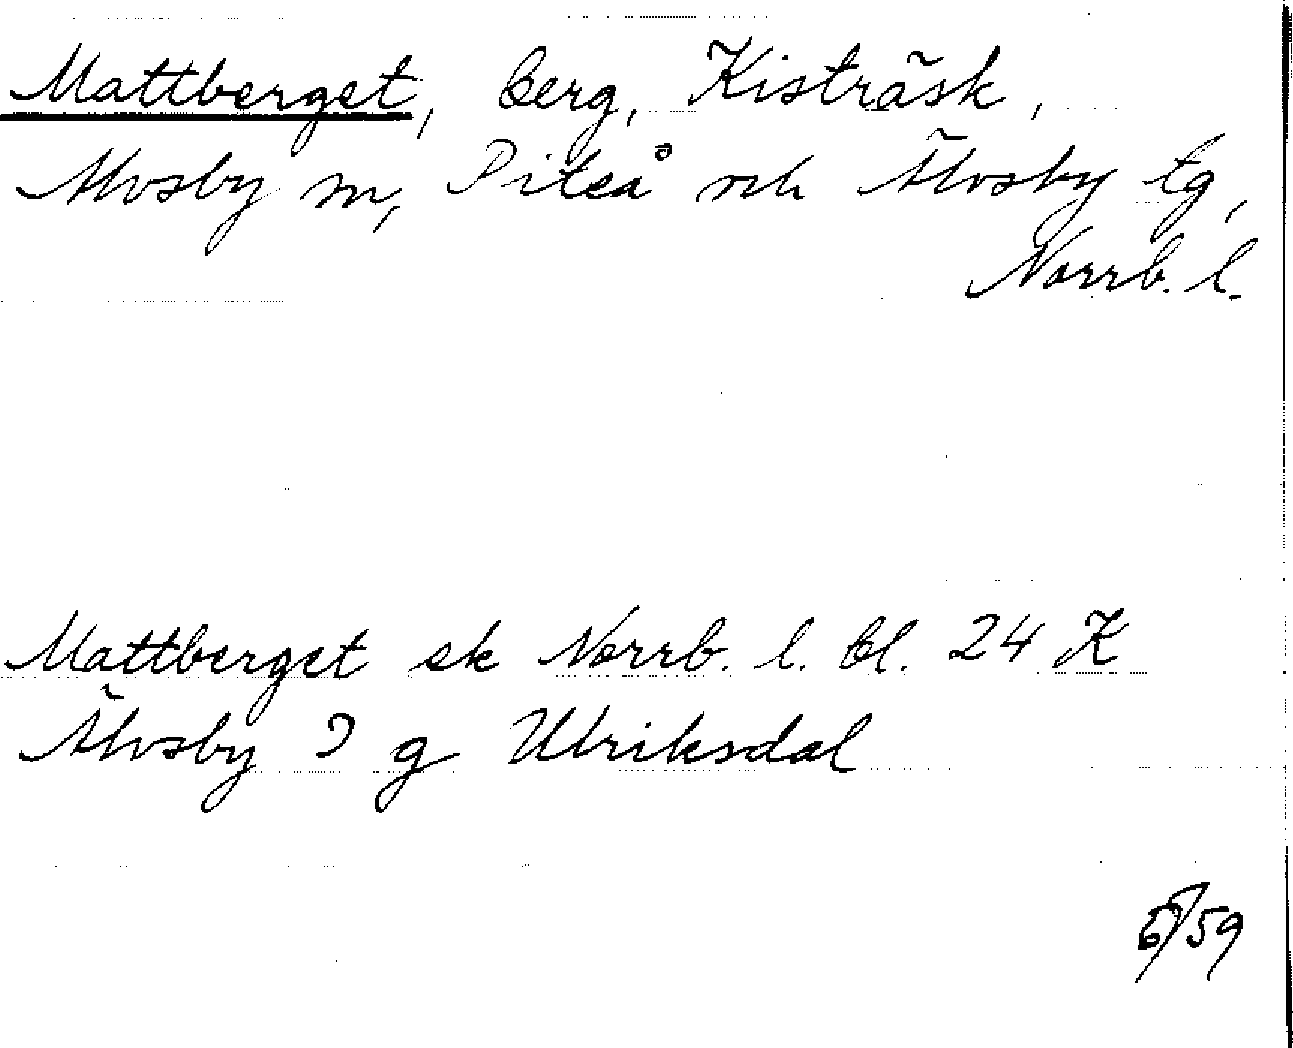 Mattberget, berg, Kisträsk,
Älvsby sn, Piteå och Älvsby tg,
Norrb. l.
Mattberget sk Norrb. l. bl. 24 K
Älvsby J g Ulriksdal
/59